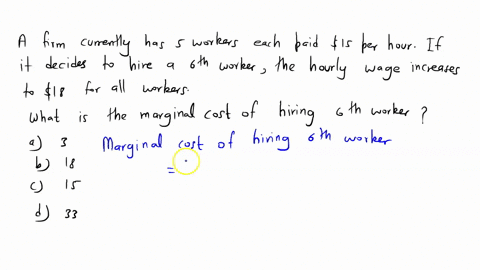 A firm currently has 5 workers each paid $15 per hour. If
it decides to hire a 6th worker, the hourly wage increases
to $18 for all workers.
What is the marginal cost of hiring 6th worker?
a) 3
Marginal cost of hiring 6th worker
=
b) 18
c) 15
d) 33